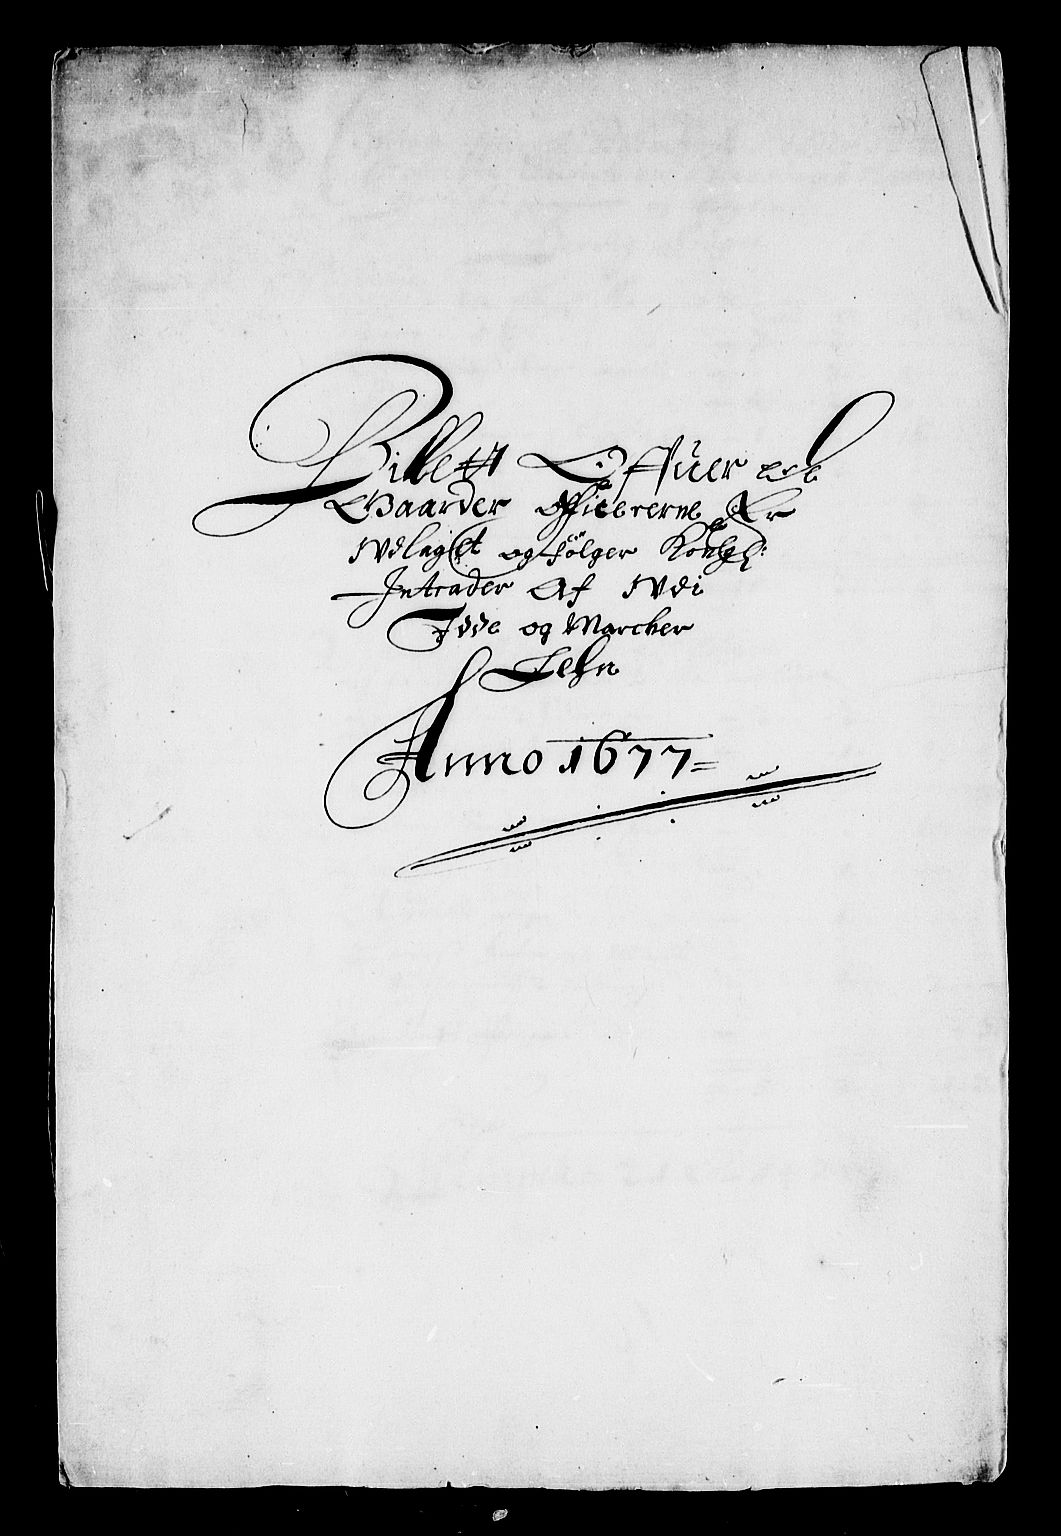 Billett Offuer dee
Gaarder officererne Er
Udlaget og følger Kongl:
Intrader Af Udi
Idde og Marcher
Lehn
Anno 1677=